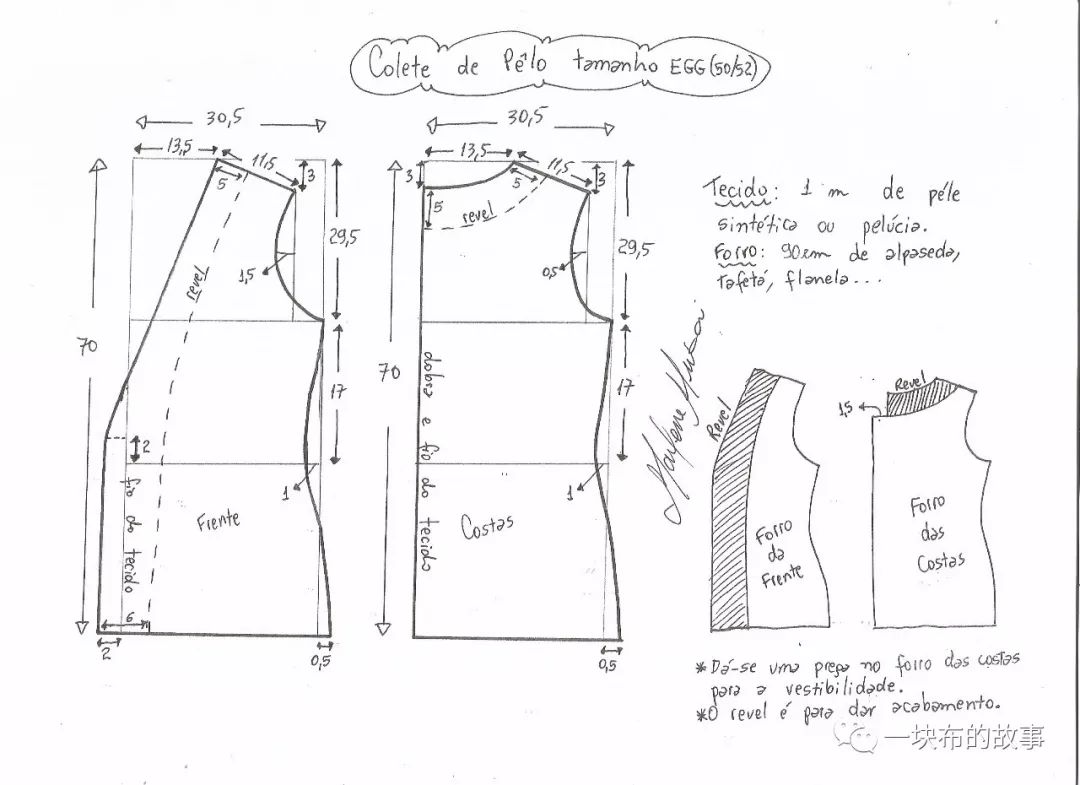 Colete de Pêlo tamanho EGG (50/52)
30,5
13,5
11,5
3
5
revel
1,5
29,5
70
17
2
1
fio do tecido
Frente
6
2
0,5
30,5
13,5
11,5
3
3
5
5
revel
0,5
29,5
70
17
1
dobra e fio do tecido
Costas
0,5
Tecido: 1 m de péle
sintética ou pelúcia.
Forro: 90cm de alpaseda,
tafetá, flanela...
Revel
Forro
da
Frente
Revel
1,5
Forro
das
Costas
*Dá-se uma prega no forro das costas
para a vestibilidade.
*O revel é para dar acabamento.
一块布的故事